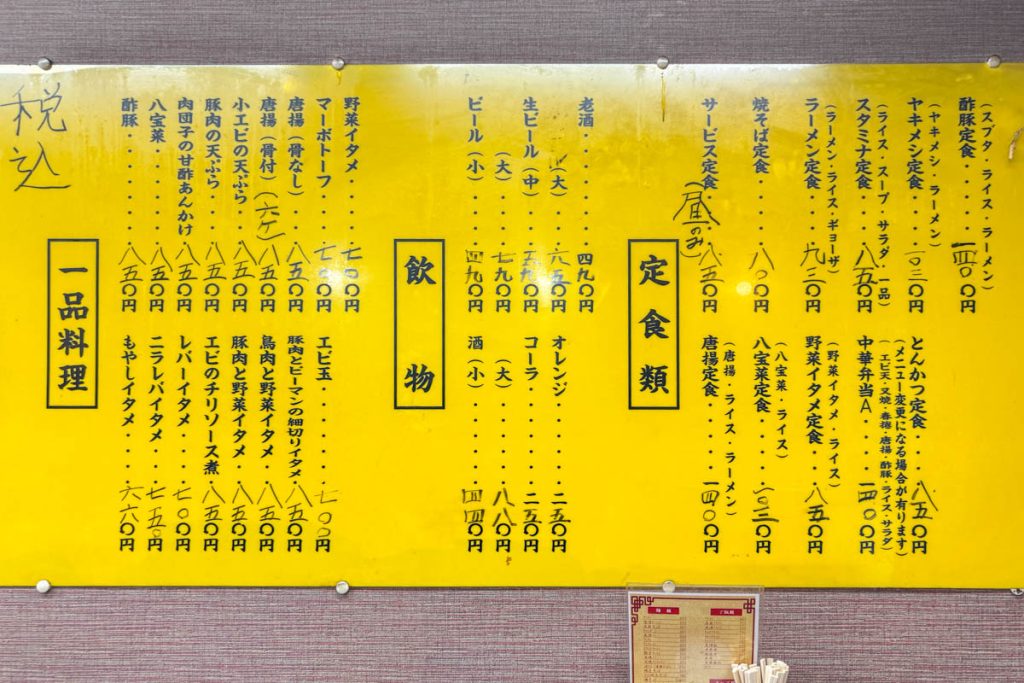 定食類
(スブタ・ライス・ラーメン)
酢豚定食・・・・一四〇〇円
(ヤキメシ・ラーメン)
ヤキメシ定食・・・一〇三〇円
(ライス・スープ・サラダ・一品)
スタミナ定食・・・八五〇円
(ラーメン・ライス・ギョーザ)
ラーメン定食・・・九三〇円
焼そば定食・・・八〇〇円
サービス定食・・・八五〇円
(昼のみ)
とんかつ定食・・・八五〇円
(メニュー変更になる場合が有ります)
(エビ天・叉焼・春捲・唐揚・酢豚・ライス・サラダ)
中華弁当A・・・一四〇〇円
(野菜イタメ・ライス)
野菜イタメ定食・・八五〇円
(八宝菜・ライス)
八宝菜定食・・・一〇三〇円
(唐揚・ライス・ラーメン)
唐揚定食・・・・一四〇〇円
飲物
老酒・・・・・・四九〇円
(大)・・・六五〇円
生ビール(中)・・五九〇円
(大)・・・七九〇円
ビール(小)・・・四九〇円
オレンジ・・・・二五〇円
コーラ・・・・・二五〇円
(大)・・・八八〇円
酒(小)・・・・四四〇円
一品料理
野菜イタメ・・・七〇〇円
マーボトーフ・・・七〇〇円
唐揚(骨なし)・・八五〇円
唐揚(骨付)(六ケ)八五〇円
小エビの天ぷら・・八五〇円
豚肉の天ぷら・・・八五〇円
肉団子の甘酢あんかけ八五〇円
八宝菜・・・・・八五〇円
酢豚・・・・・・八五〇円
エビ玉・・・・・七〇〇円
豚肉とピーマンの細切りイタメ・八五〇円
鳥肉と野菜イタメ・・八五〇円
豚肉と野菜イタメ・・八五〇円
エビのチリソース煮・八五〇円
レバーイタメ・・・七〇〇円
ニラレバイタメ・・・七五〇円
もやしイタメ・・・六六〇円
税込